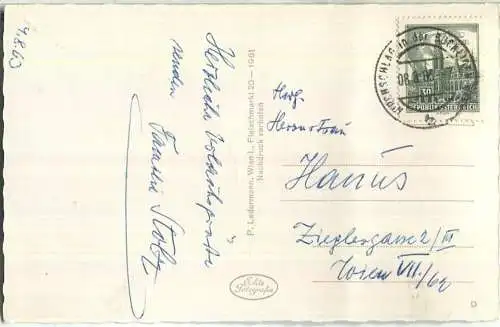 7.8.63
Herzliche Urlaubsgrüsse
senden
Familie Stolz
P. Ledermann, Wien I., Fleischmarkt 20 — 1961
Nachdruck verboten
Echte
Fotografie
KIRCHSCHLAG in der BUCKLIGEN
REPUBLIK ÖSTERREICH
Herrn u Frau
Hanus
Zieglergasse 2/III
Wien VII./62